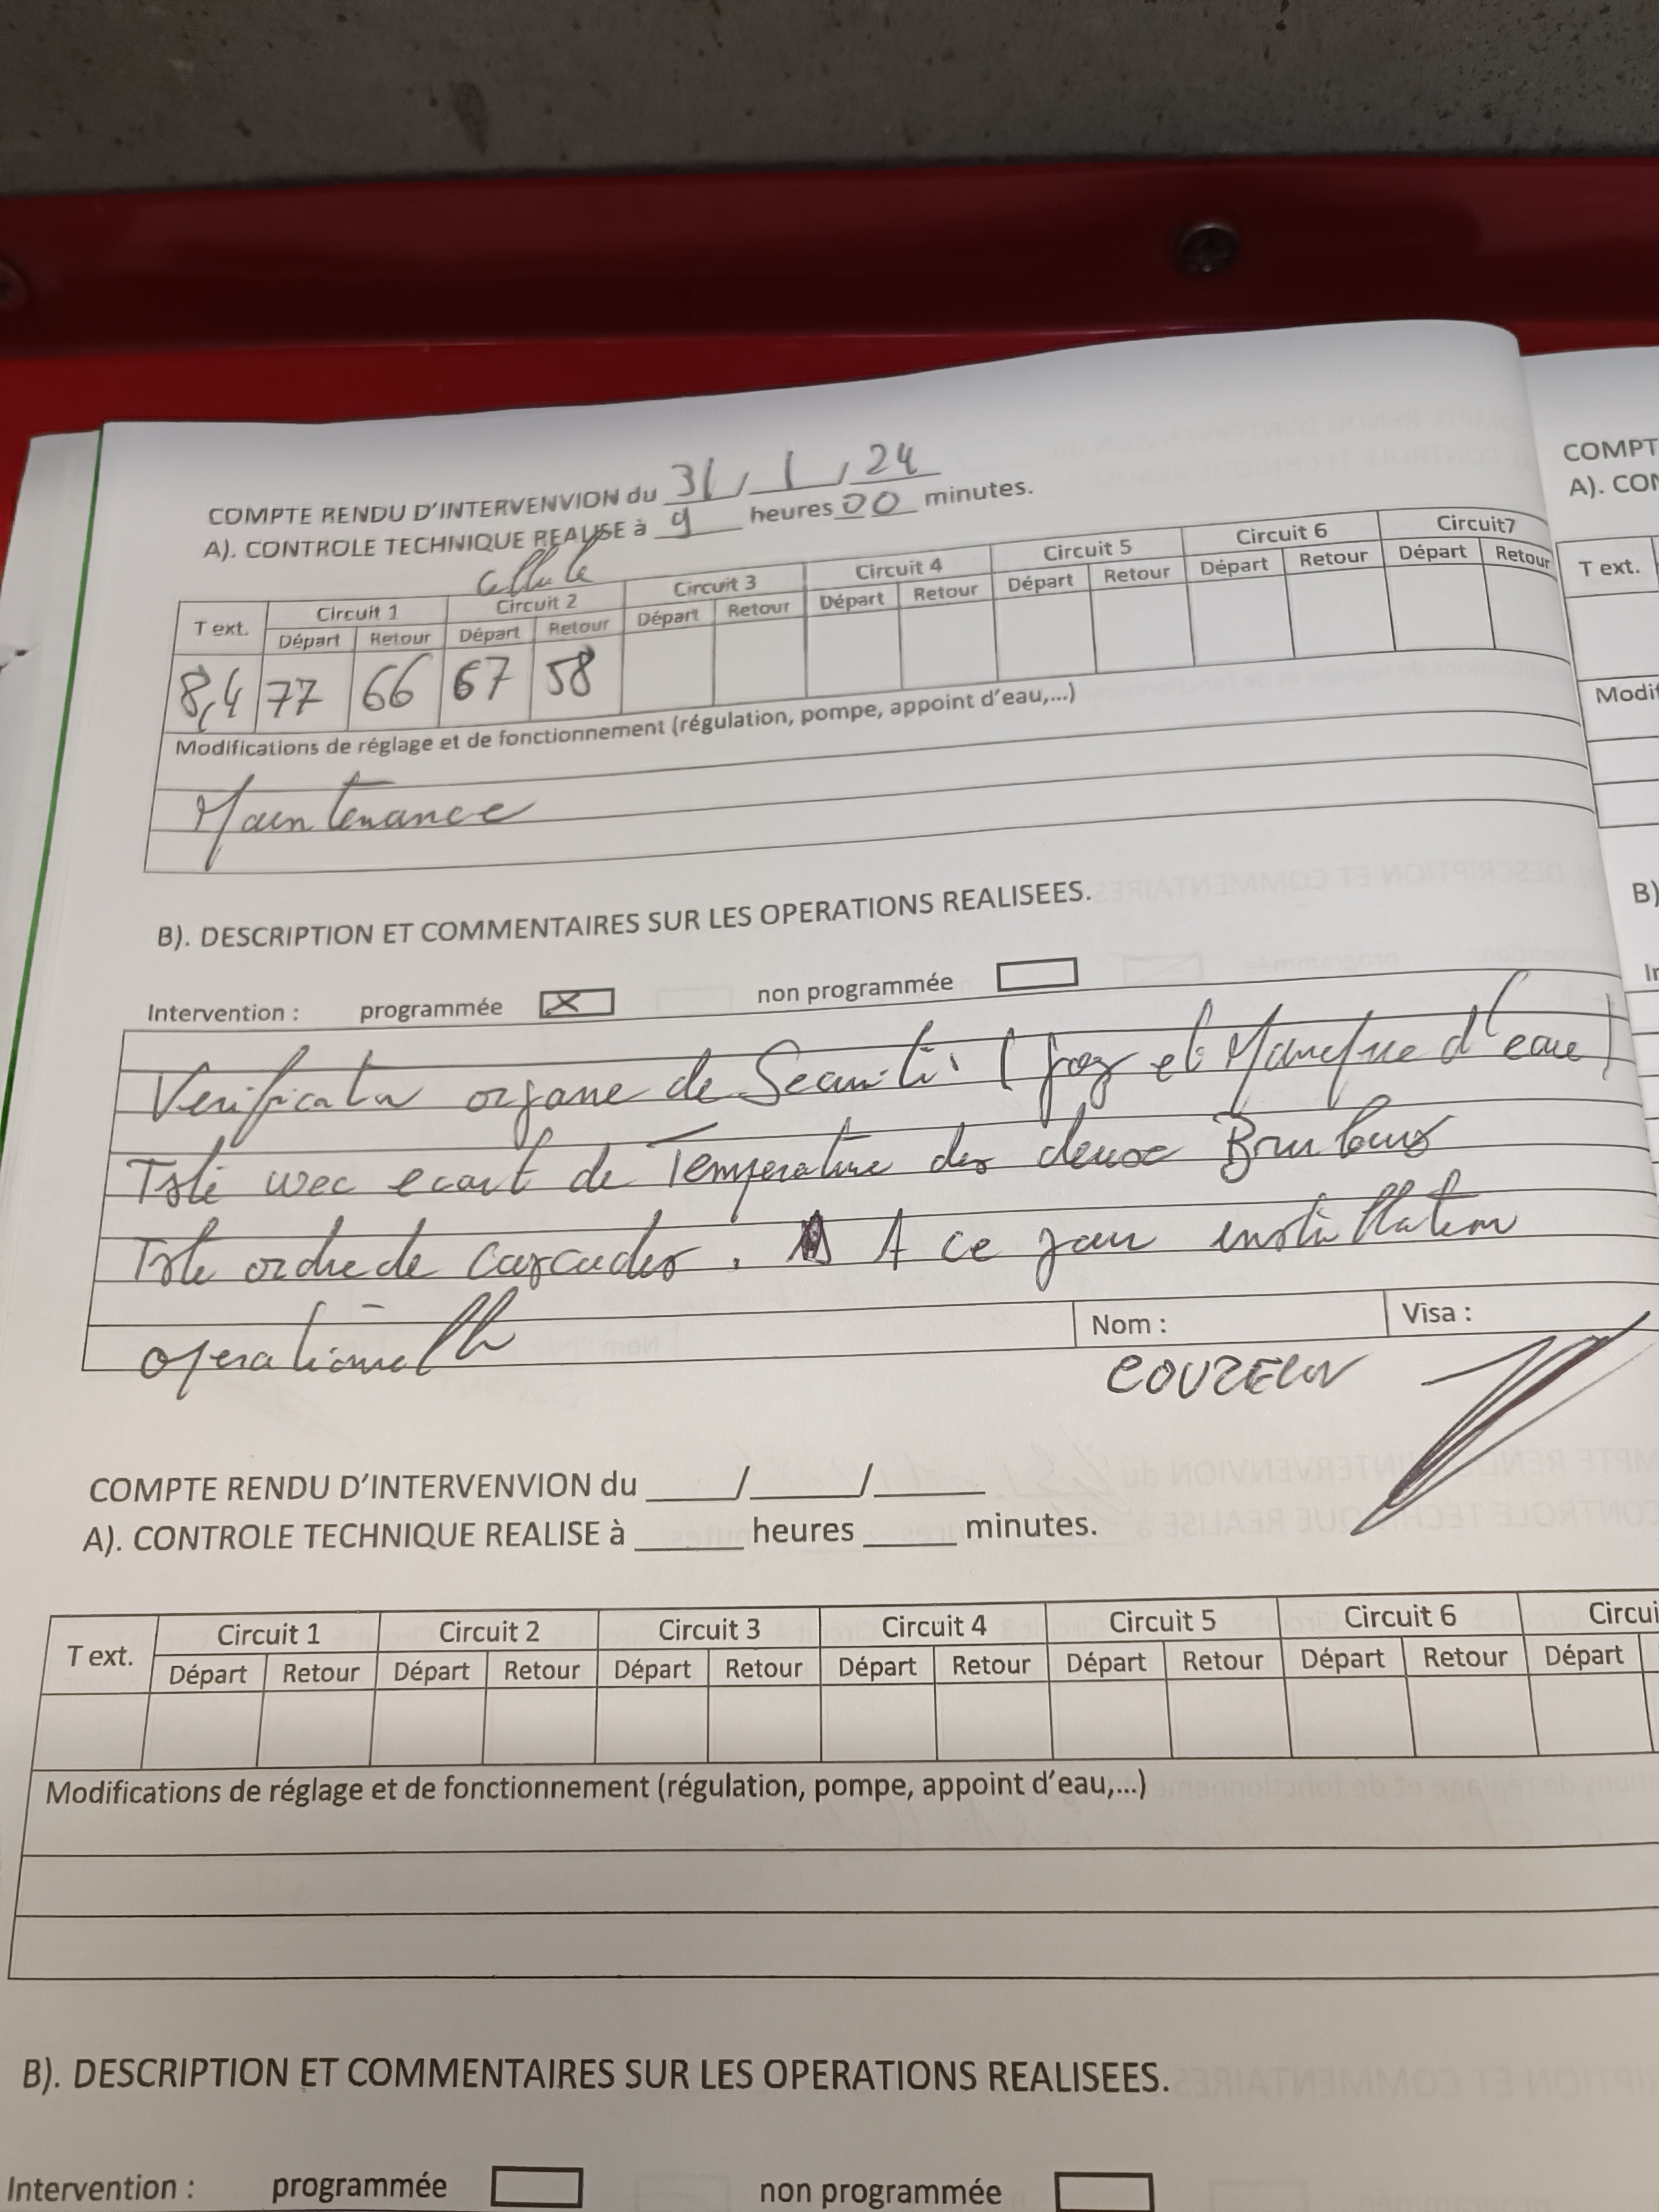 COMPTE RENDU D'INTERVENVION du 31 / 1 / 24
A). CONTROLE TECHNIQUE REALISE à 9 heures 00 minutes.
cellule
T ext. Circuit 1 Circuit 2 Circuit 3 Circuit 4 Circuit 5 Circuit 6 Circuit7
Départ Retour Départ Retour Départ Retour Départ Retour Départ Retour Départ Retour Départ Retour
8,4 77 66 67 58
Modifications de réglage et de fonctionnement (régulation, pompe, appoint d'eau,...)
Maintenance
B). DESCRIPTION ET COMMENTAIRES SUR LES OPERATIONS REALISEES.
Intervention : programmée X non programmée
organe de Securité (gaz et Manque d'eau)
ecart de Temperature des deux Bruleurs
ordre de cascades. A ce jour installation
operationnelle
Nom : Visa :
COMPTE RENDU D'INTERVENVION du ____/____/____
A). CONTROLE TECHNIQUE REALISE à ____ heures ____ minutes.
T ext. Circuit 1 Circuit 2 Circuit 3 Circuit 4 Circuit 5 Circuit 6 Circui
Départ Retour Départ Retour Départ Retour Départ Retour Départ Retour Départ Retour Départ
Modifications de réglage et de fonctionnement (régulation, pompe, appoint d'eau,...)
B). DESCRIPTION ET COMMENTAIRES SUR LES OPERATIONS REALISEES.
Intervention : programmée non programmée
COMPT
A). CON
T ext.
Modif
B)
In